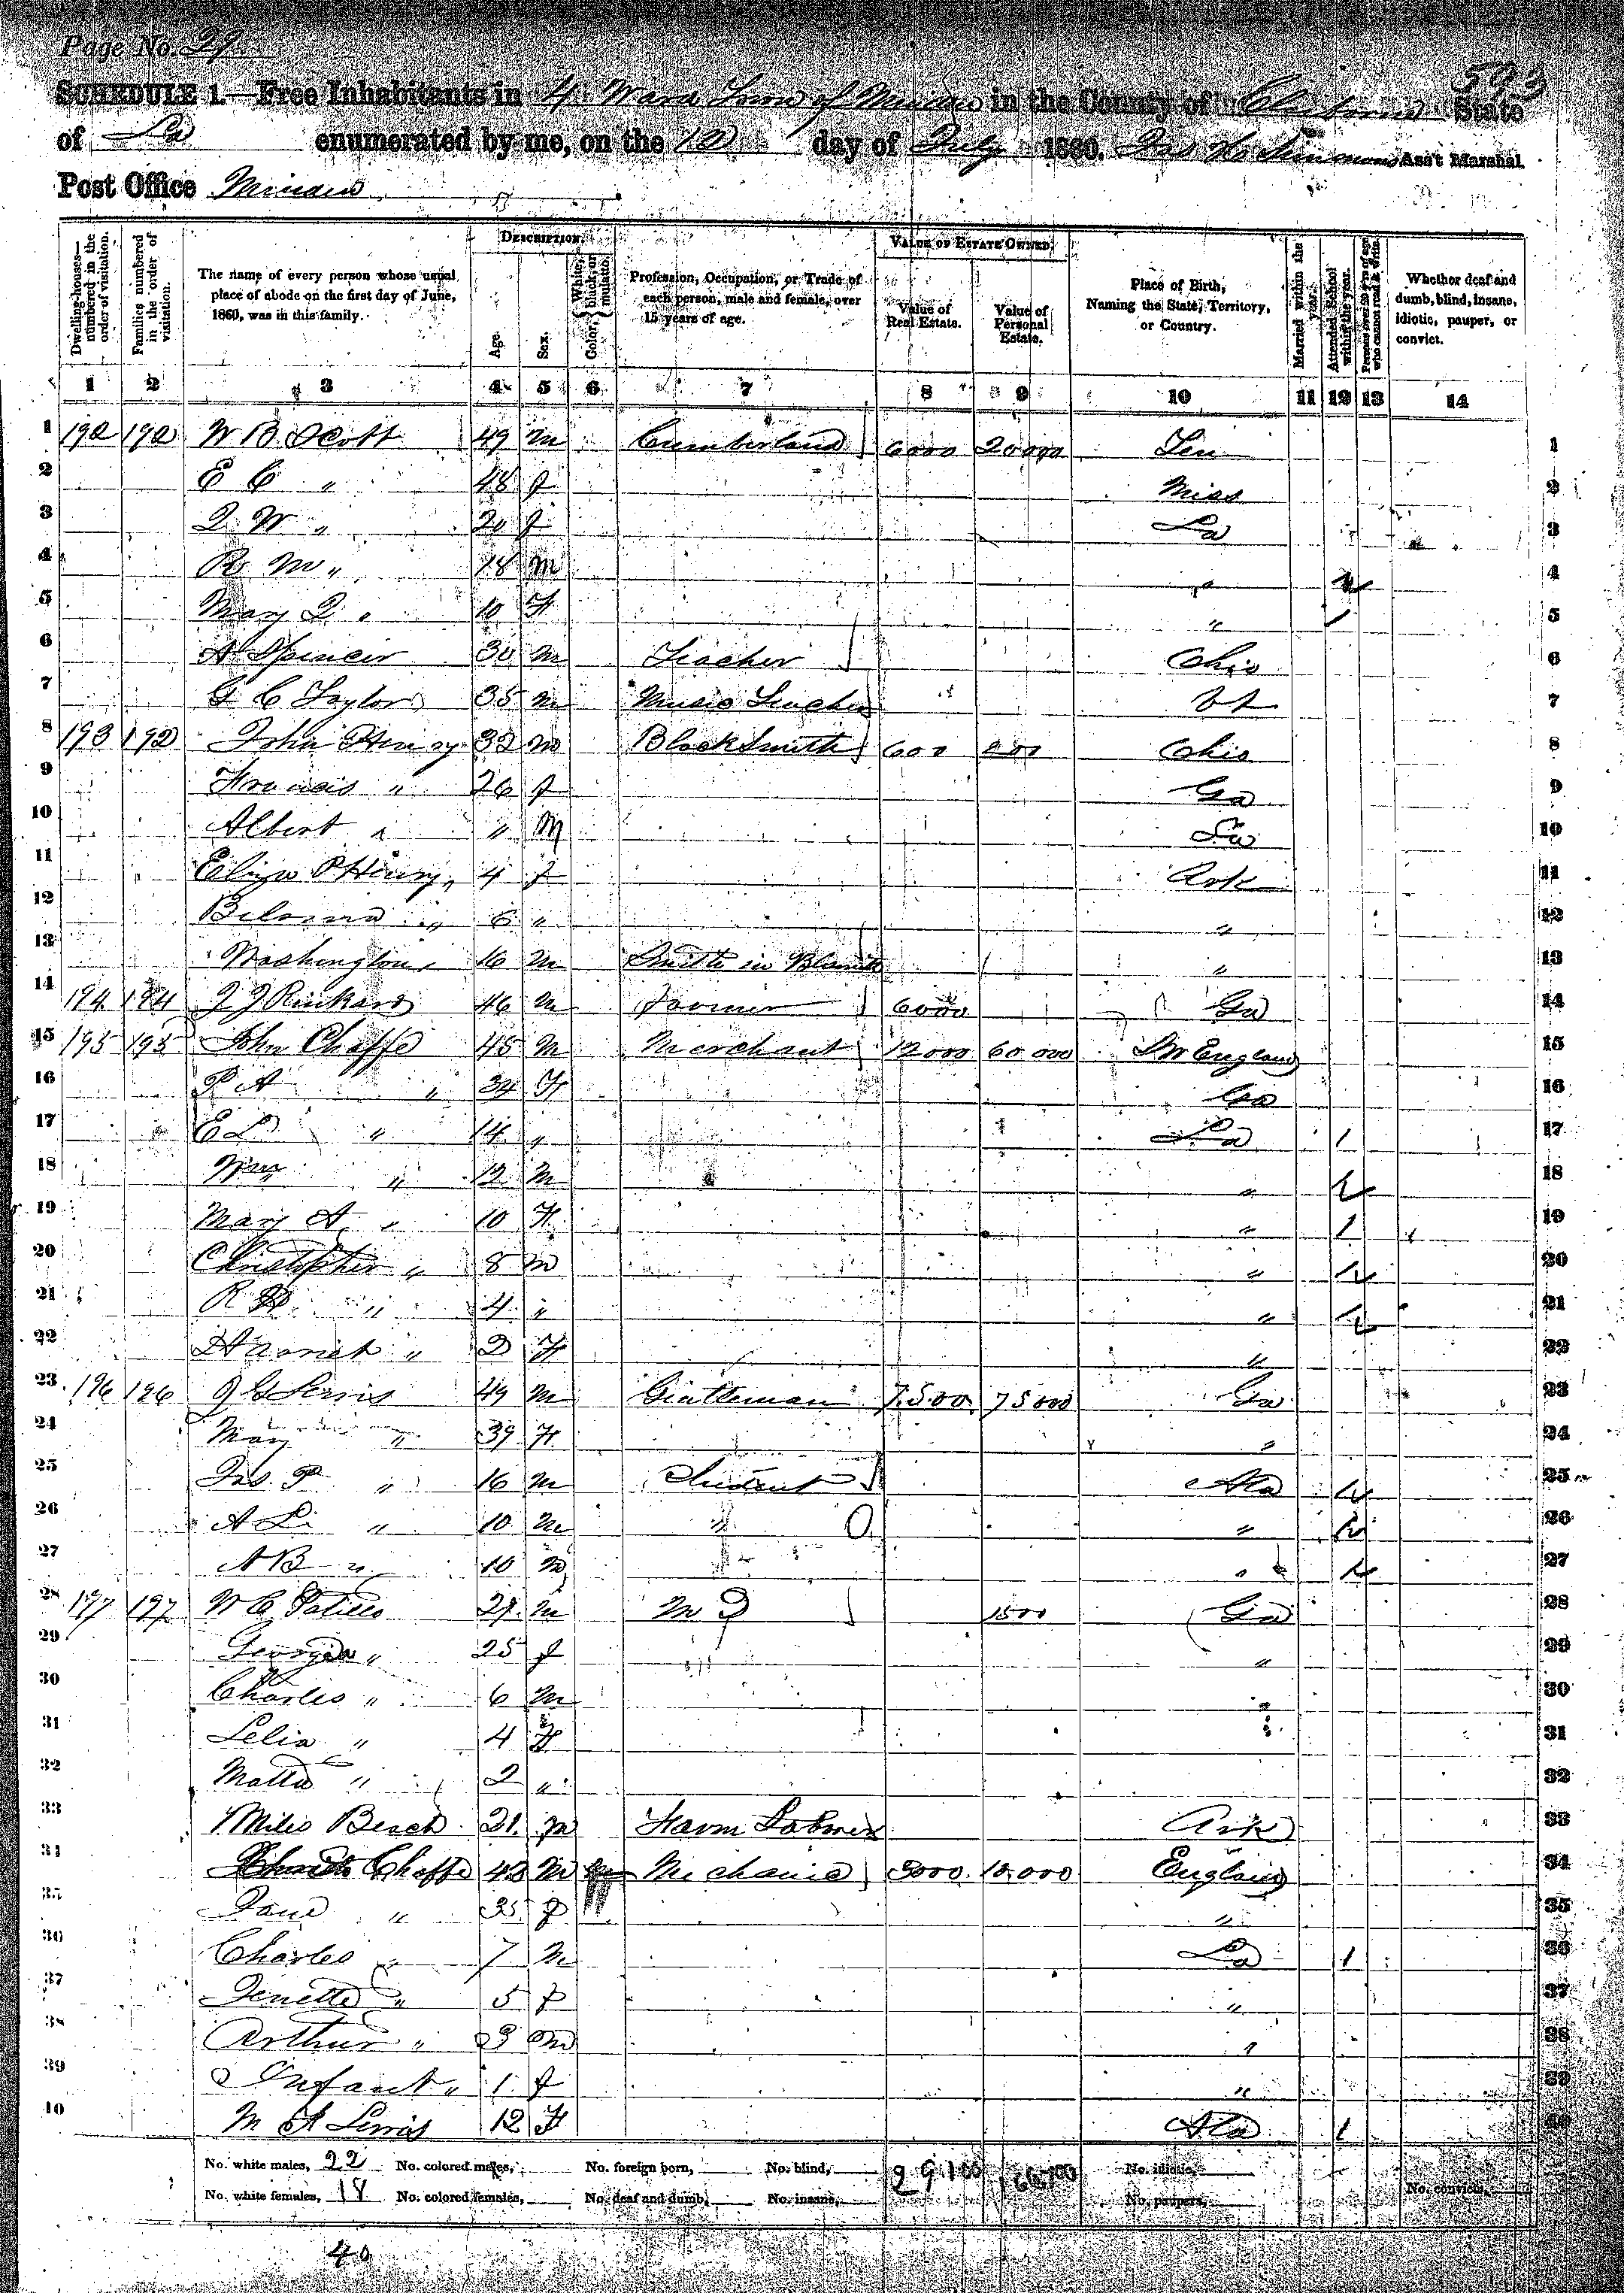 Page No. 29
593
SCHEDULE 1.—Free Inhabitants in 4 Ward Town of Minden in the County of Claiborne State
of La enumerated by me, on the 12 day of July 1860. Jas Simmons Ass't Marshal
Post Office Minden
Dwelling-houses—numbered in the order of visitation.
Families numbered in the order of visitation.
The name of every person whose usual place of abode on the first day of June, 1860, was in this family.
DESCRIPTION.
Age.
Sex.
Color, { White, black, or mulatto.
Profession, Occupation, or Trade of each person, male and female, over 15 years of age.
VALUE OF ESTATE OWNED.
Value of Real Estate.
Value of Personal Estate.
Place of Birth, Naming the State, Territory, or Country.
Married within the year.
Attended School within the year.
Persons over 20 y'rs of age who cannot read & write.
Whether deaf and dumb, blind, insane, idiotic, pauper, or convict.
1 2 3 4 5 6 7 8 9 10 11 12 13 14
1 192 192 W B Scott 49 M Cumberland 6000 20000 Ten 1
2 E C " 48 f Miss 2
3 W " 20 f La 3
4 R M " 18 M " 4
5 Mary " 10 F " / 5
6 A Spencer 30 M Teacher Ohio 6
7 G C Taylor 35 M Music Teacher Vt 7
8 193 192 John Henry 32 M BlackSmith 600 Ohio 8
9 Francis " 26 f Ga 9
10 Albert " " M La 10
11 Eliza Henry 4 f Ark 11
12 " 6 " " 12
13 Washington " 16 M Smith in " 13
14 194 194 J J Rinkard 46 M Farmer 6000 Ga 14
15 195 195 John Chaffe 45 M Merchant 12000 60000 England 15
16 P A " 34 F Ga 16
17 E L " 14 " La 1 17
18 Wm " 12 M " 18
19 Mary A " 10 F " 1 19
20 Christopher " 8 M " 20
21 R H " 4 " " 21
22 Harriet " 2 F " 22
23 196 196 J G Lewis 49 M Gentleman 7500 75000 Ga 23
24 Mary " 39 F " 24
25 Jas. P " 16 M Student Ala 25
26 A L " 10 M " " 26
27 A B " 10 M " 27
28 197 197 W C Patillo 29 M M D 1500 Ga 28
29 Georgia " 25 f " 29
30 Charles " 6 M " 30
31 Lelia " 4 F " 31
32 " 2 " 32
33 Miles Beach 21 M Farm Laborer Ark 33
34 Chaffe 43 M Mechanic 3000 10,000 England 34
35 Jane " 35 f " 35
36 Charles " 7 M La 1 36
37 Jenette " 5 f " 37
38 Arthur " 3 M " 38
39 Infant " 1 f " 39
40 M A Lewis 12 F Ala 1 40
No. white males, 22 No. colored males, No. foreign born, No. blind, No. idiotic,
No. white females, 18 No. colored females, No. deaf and dumb, No. insane, 29,100 No. paupers, No. convicts,
40